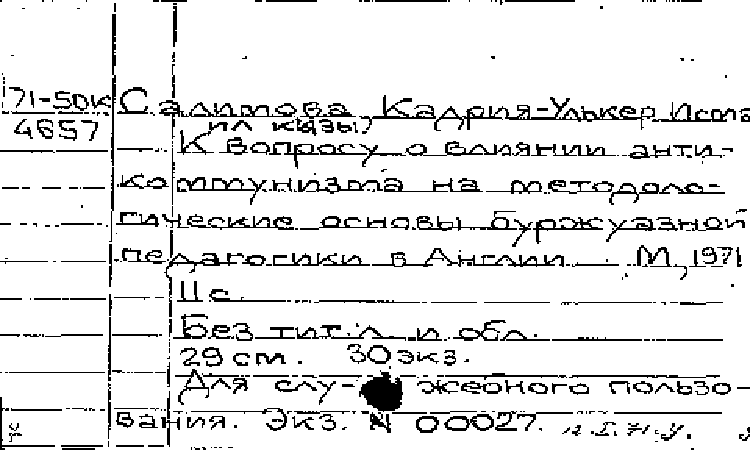 71-50к Салимова, Кадрия-Улькер Исма
4657 ил кызы)
К вопросу о влиянии анти-
коммунизма на методоло-
гические основы буржуазной
педагогики в Англии. М., 1971
11 с.
Без тит. л. и обл.
29 см. 30 экз.
Для слу- жебного пользо-
вания. Экз. N 00027.